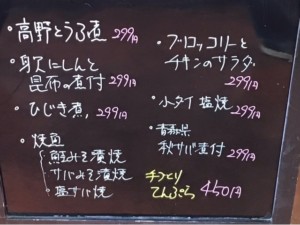 ・高野とうふ煮 299円
・身欠にしんと
昆布の煮付 299円
・ひじき煮 299円
・焼魚
鮭みそ漬焼
サバみそ漬焼
塩サバ焼
・ブロッコリーと
チキンのサラダ
299円
・小タイ塩焼
299円
・青森県
秋サバ煮付 299円
手づくり
てんぷら 450円